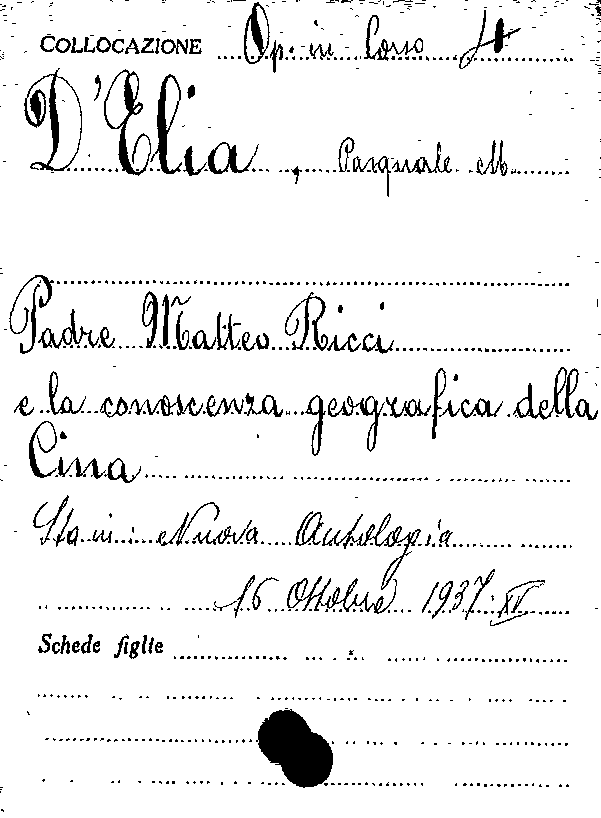 COLLOCAZIONE Op. in Corso
D'Elia, Pasquale M.
Padre Matteo Ricci
e la conoscenza geografica della
Cina
Sta in: Nuova Antologia
16 Ottobre 1937. XV
Schede figlie